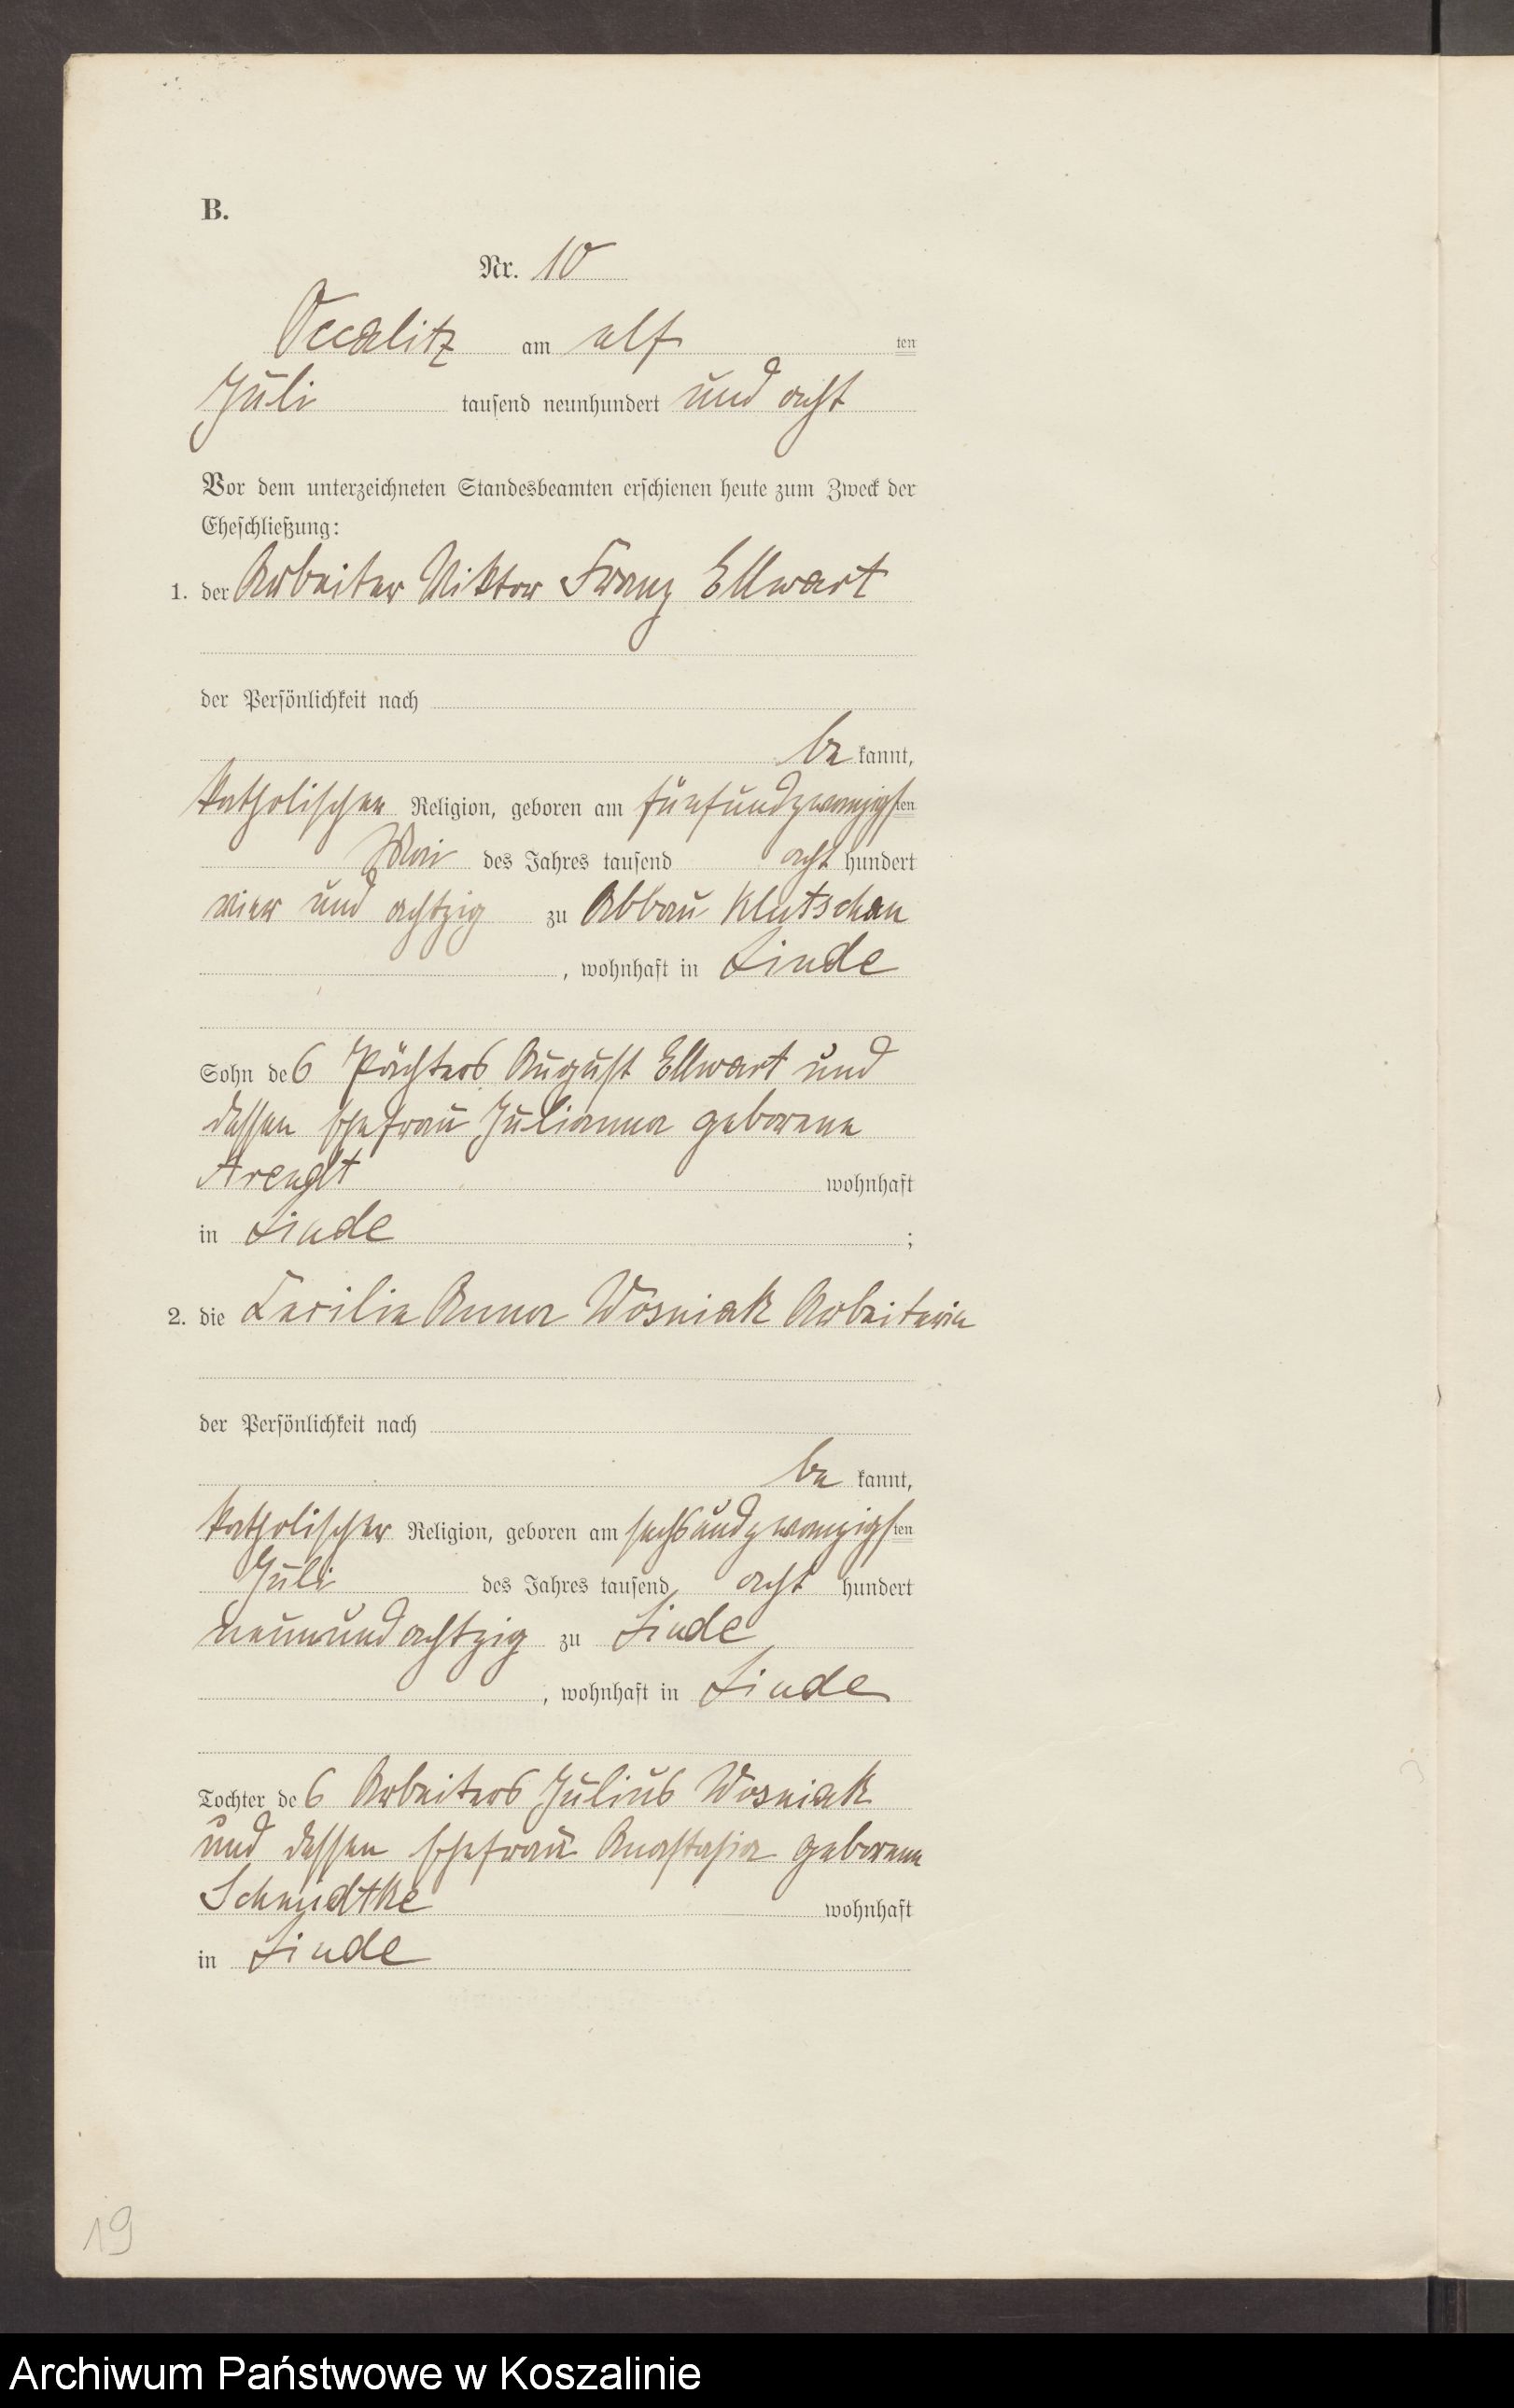 B.
Nr. 10
Occalitz am elf ten
Juli tausend neunhundert und acht
Vor dem unterzeichneten Standesbeamten erschienen heute zum Zweck der
Eheschließung:
1. der Arbeiter Viktor Franz Ellwart
der Persönlichkeit nach
be kannt,
katholischen Religion, geboren am fünfundzwanzigsten
Mai des Jahres tausend acht hundert
vier und achtzig zu Abbau Klutschau
, wohnhaft in Linde
Sohn des Pächters August Ellwart und
dessen Ehefrau Julianna geborene
Arendt wohnhaft
in Linde ;
2. die Cecilie Anna Wosniak Arbeiterin
der Persönlichkeit nach
be kannt,
katholischer Religion, geboren am sechsundzwanzigsten
Juli des Jahres tausend acht hundert
neunundachtzig zu Linde
, wohnhaft in Linde
Tochter des Arbeiters Julius Wosniak
und dessen Ehefrau Anastasia geborene
Schmidtke wohnhaft
in Linde
19
Archiwum Państwowe w Koszalinie